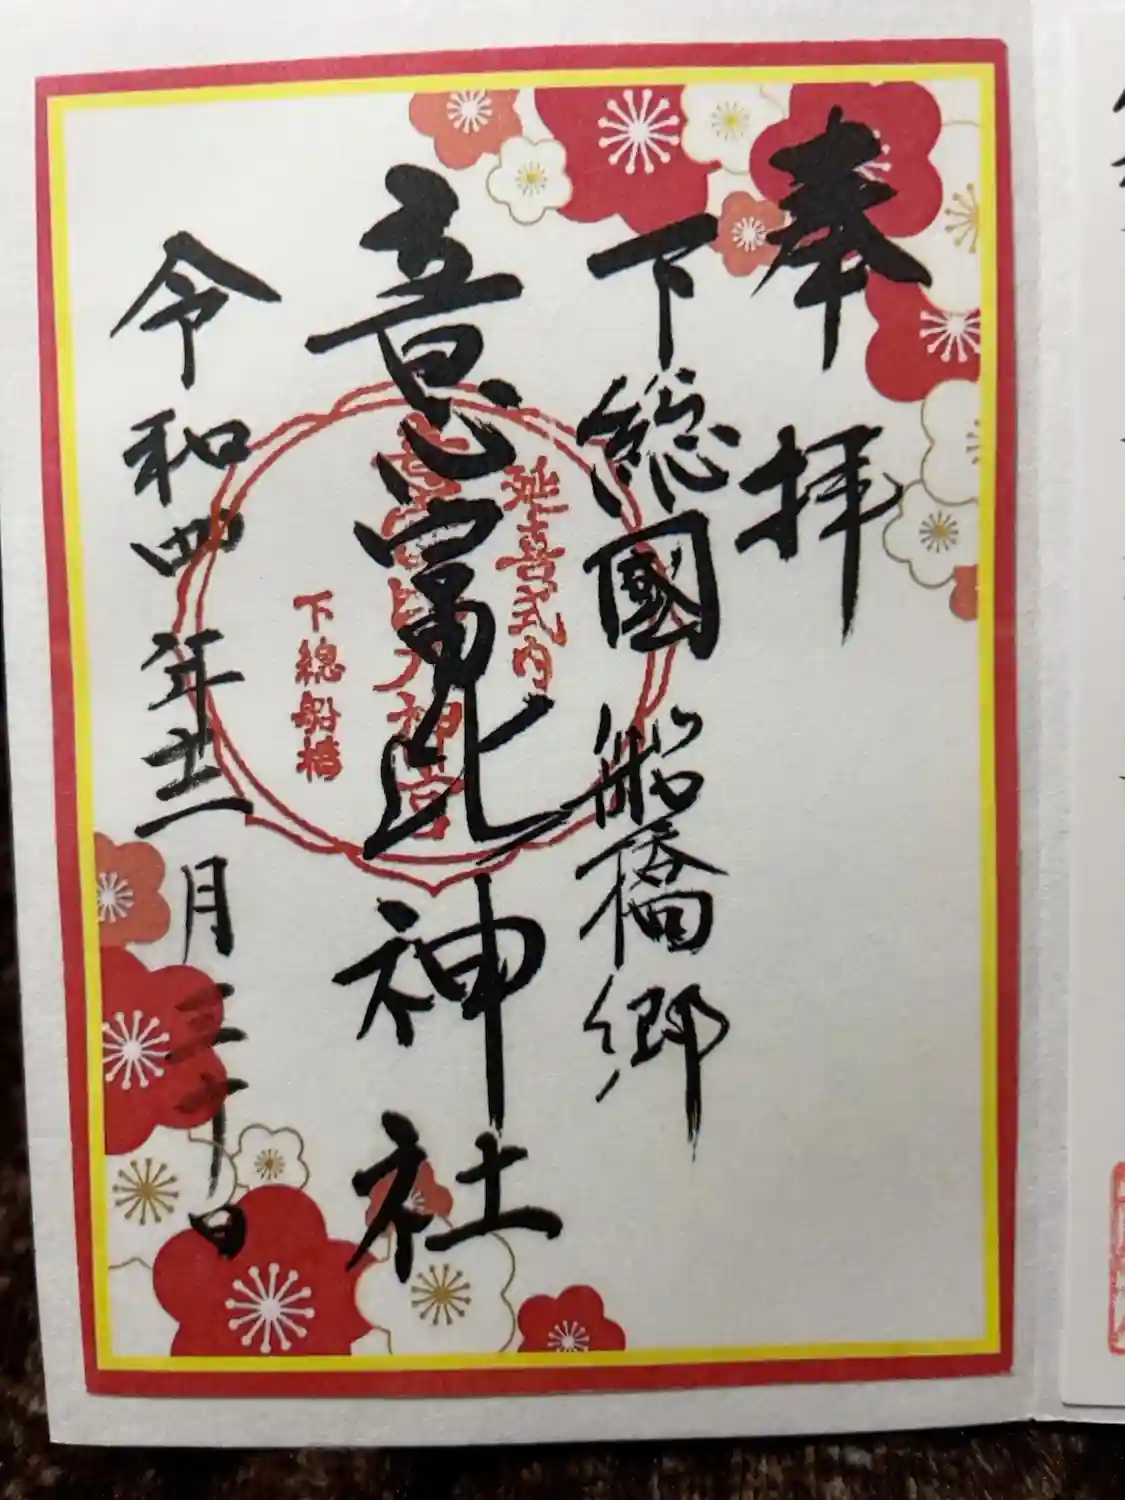 奉拝
下総國船橋郷
意富比神社
令和四年十二月三十日
延喜式内
意富比大神宮
下總船橋